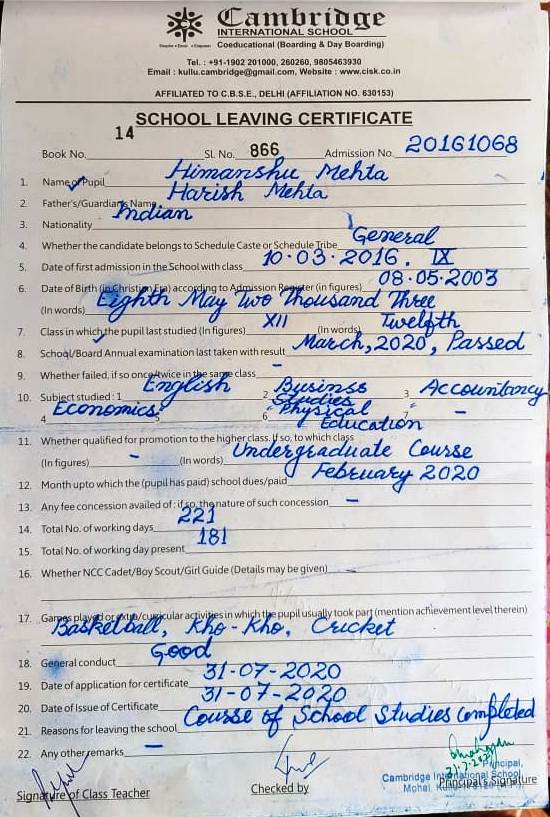 Cambridge
INTERNATIONAL SCHOOL
Coeducational (Boarding & Day Boarding)
Tel. : +91-1902 201000, 260260, 9805463930
Email : kullu.cambridge@gmail.com, Website : www.cisk.co.in
AFFILIATED TO C.B.S.E., DELHI (AFFILIATION NO. 630153)
SCHOOL LEAVING CERTIFICATE
Book No. 14 Sl. No. 866 Admission No. 20161068
1. Name of Pupil Himanshu Mehta
2. Father's/Guardian's Name Harish Mehta
3. Nationality Indian
4. Whether the candidate belongs to Schedule Caste or Schedule Tribe General
5. Date of first admission in the School with class 10.03.2016. IX
6. Date of Birth (in Christian Era) according to Admission Register (in figures) 08.05.2003
(In words) Eighth May Two Thousand Three
7. Class in which the pupil last studied (In figures) XII (In words) Twelfth
8. School/Board Annual examination last taken with result March, 2020, Passed
9. Whether failed, if so once/twice in the same class –
10. Subject studied : 1 English 2 Businss Studies 3 Accountancy
4 Economics 5 6 Physical Education 7 –
11. Whether qualified for promotion to the higher class. If so, to which class
(In figures) – (In words) Undergraduate Course
12. Month upto which the (pupil has paid) school dues/paid February 2020
13. Any fee concession availed of : if so, the nature of such concession –
14. Total No. of working days 221
15. Total No. of working day present 181
16. Whether NCC Cadet/Boy Scout/Girl Guide (Details may be given) –
17. Games played or extra/curricular activities in which the pupil usually took part (mention achievement level therein)
Basketball, Kho-Kho, Cricket
18. General conduct Good
19. Date of application for certificate 31-07-2020
20. Date of Issue of Certificate 31-07-2020
21. Reasons for leaving the school Course of School Studies completed
22. Any other remarks –
Principal,
Cambridge International School
Mohal,
Signature of Class Teacher Checked by Principal's Signature